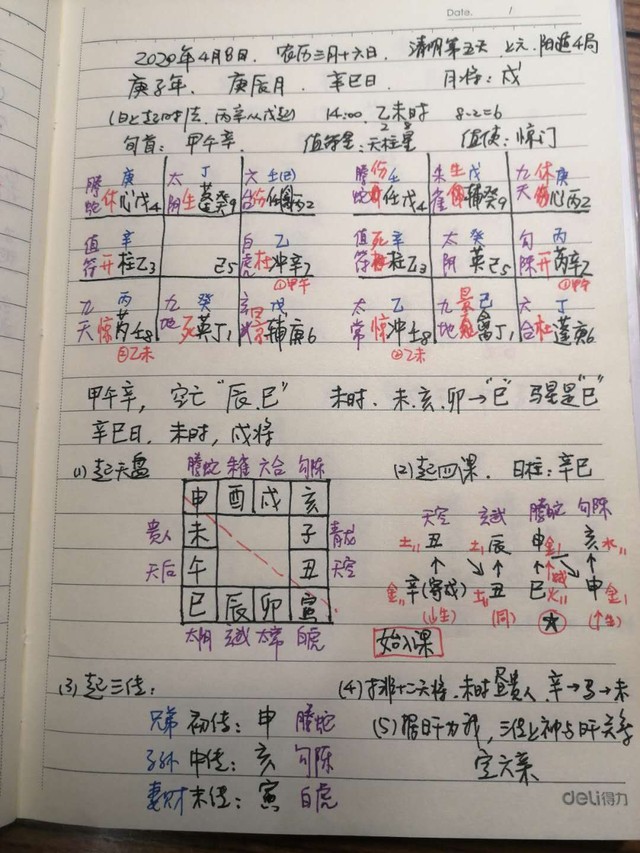 Date. /
2020年4月8日. 农历三月十六日. 清明第五天 上元. 阳遁4局
庚子年. 庚辰月. 辛巳日. 月将:戌
(日上起时法.丙辛从戊起) 14:00. 乙未时 8-2=6
旬首: 甲午辛. 值符星:天柱星 值使:惊门
螣 庚 太 丁 六
蛇休心戊4 阴生蓬癸9 合伤任丙2
螣伤壬 朱生戊 九休庚
蛇 任戊4 雀 辅癸9 天 心丙2
值 辛 白 乙
符开柱乙3 己5 虎杜冲辛7
①甲午
值死辛 太 癸 勾 丙
符 柱乙3 阴 英己5 陈开芮辛7
①甲午
九 丙 九 癸 玄 戊
天惊芮壬8 地死英丁1 武景辅庚6
②乙未
太 乙 九景己 六 丁
常惊冲壬8 地 禽丁1 合杜蓬庚6
②乙未
甲午辛, 空亡"辰.巳" 未时. 未.亥.卯→"巳" 马星是"巳"
辛巳日. 未时, 戌将
(1)起天盘 螣蛇 朱雀 六合 勾陈
申 酉 戌 亥
贵人 未 子 青龙
天后 午 丑 天空
巳 辰 卯 寅
太阴 玄武 太常 白虎
(2)起四课. 日柱:辛巳
天空 玄武 螣蛇 勾陈
土 丑 土 辰 申 金 亥 水
↑ ↑ ↑ ↑
金 辛(寄戌) 土 丑 巳 火 申 金
(生) (同) ★ (↑生)
始入课
(3)起三传:
兄弟 初传: 申 螣蛇
子孙 中传: 亥 勾陈
妻财 末传: 寅 白虎
(4)排十二天将.未时昼贵人.辛→马→未
(5)据日干为我,三传上神与日干关系
定六亲
deli得力